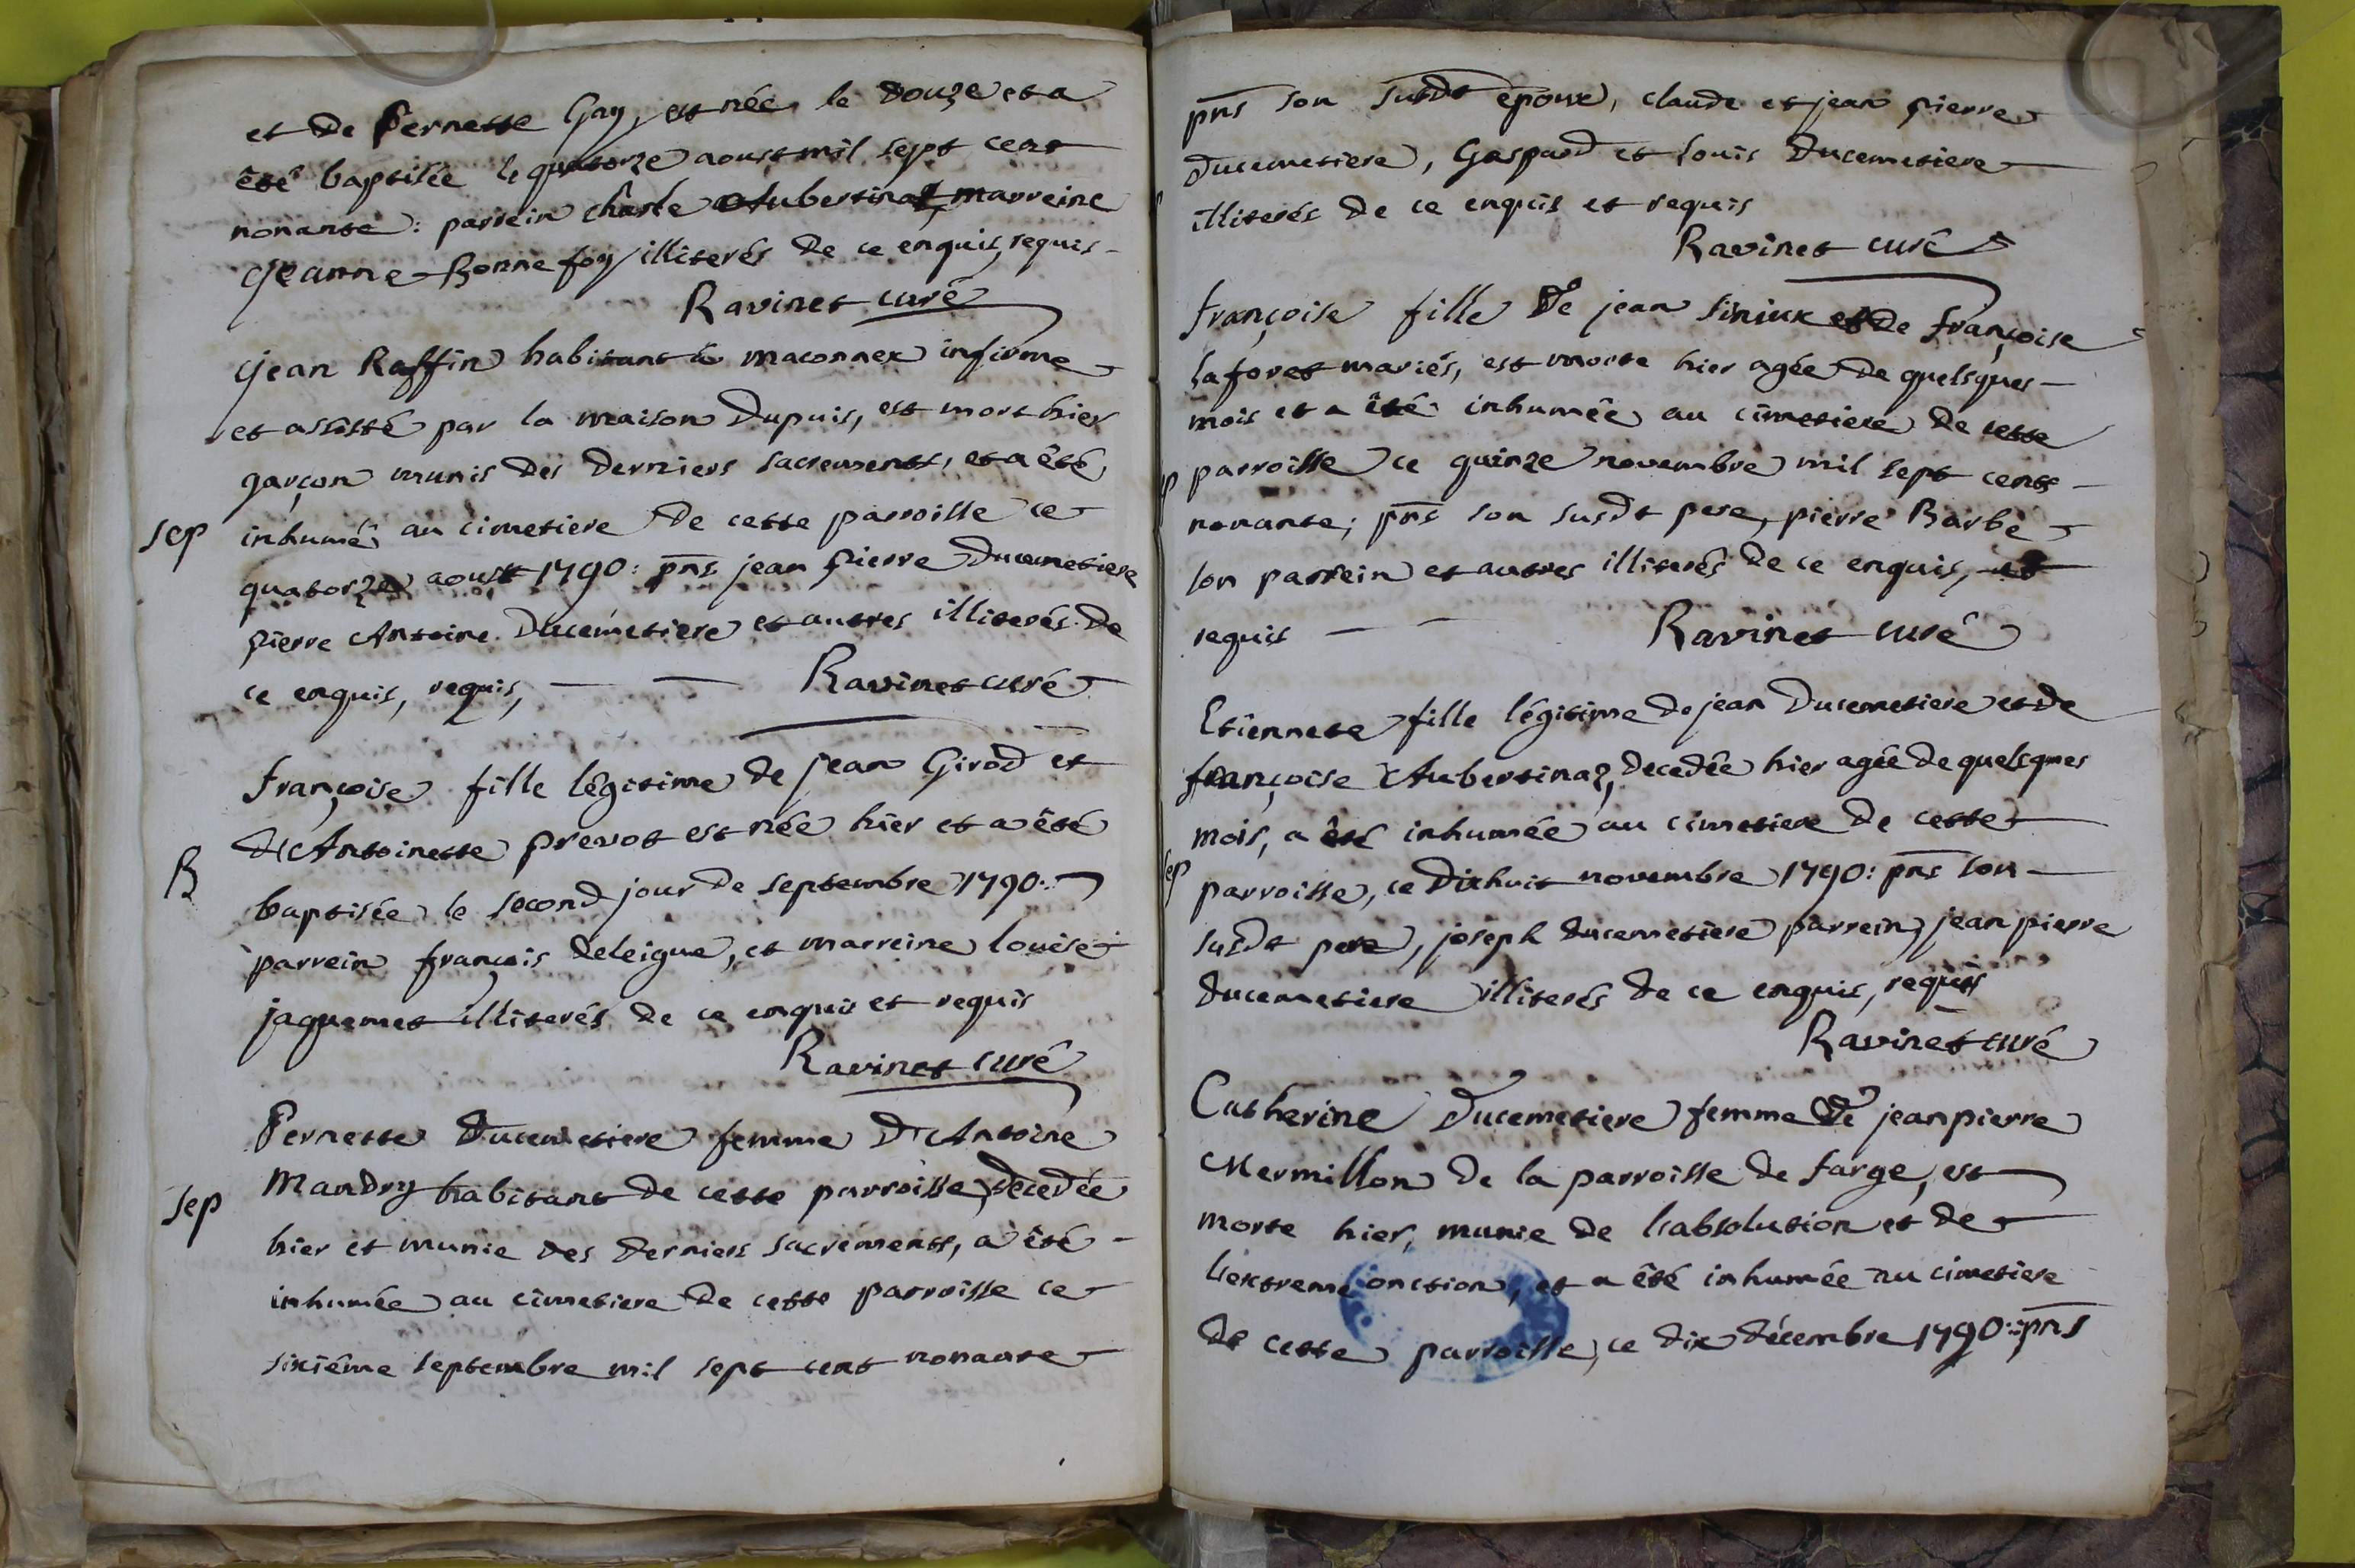 et de Pernette Gay, est née le douze et a
été baptisée le quatorze aoust mil sept cent
nonante: parrein charle Aubertinaz, marreine
Jeanne Bonnefoy illiterés de ce enquis, requis
Ravinet curé
Jean Raffin habitant à maconnex infirme
et assisté par la maison Dupuis, est mort hier
garçon munis des derniers sacrements, et a été
sep inhumé au cimetiere de cette parroisse ce
quatorze aoust 1790: pns jean pierre Ducemetiere
pierre Antoine Ducemetiere et autres illiterés de
ce enquis, requis, Ravinet curé
françoise fille légitime de jean Girod et
d'Antoinette prevot est née hier et a été
B baptisée le second jour de septembre 1790:
parrein françois deleigue, et marreine louise
jaquemet illiterés de ce enquis et requis
Ravinet curé
Pernette Ducemetiere femme d'Antoine
sep Mandry habitant de cette parroisse, decedée
hier et munie des derniers sacréments, a été
inhumée au cimetiere de cette parroisse ce
sixiême septembre mil sept cent nonante
pns son susdt epoux, claude et jean pierre
Ducemetiere, Gaspard et louis Ducemetiere
illiterés de ce enquis et requis
Ravinet curé
françoise fille de jean et de françoise
laforet mariés, est morte hier agée de quelsques
mois et a été inhumée au cimetiere de cette
parroisse ce quinze novembre mil sept cent
nonante; pns son susdt pere, pierre Barbe
son parrein et autres illiterés de ce enquis,
requis Ravinet curé
Etiennete fille légitime de jean Ducemetiere et de
françoise Aubertinaz, decedée hier agée de quelsques
mois, a été inhumée au cimetiere de cette
sep parroisse, ce dixhuit novembre 1790: pns son
susdt pere, joseph ducemetiere parrein, jean pierre
ducemetiere illiterés de ce enquis, requis
Ravinet curé
Catherine Ducemetiere femme de jean pierre
Mermillon de la parroisse de farge, est
morte hier, munie de l'absolution et de
l'extreme onction, et a été inhumée au cimetiere
de cette parroisse, ce dix décembre 1790: pns